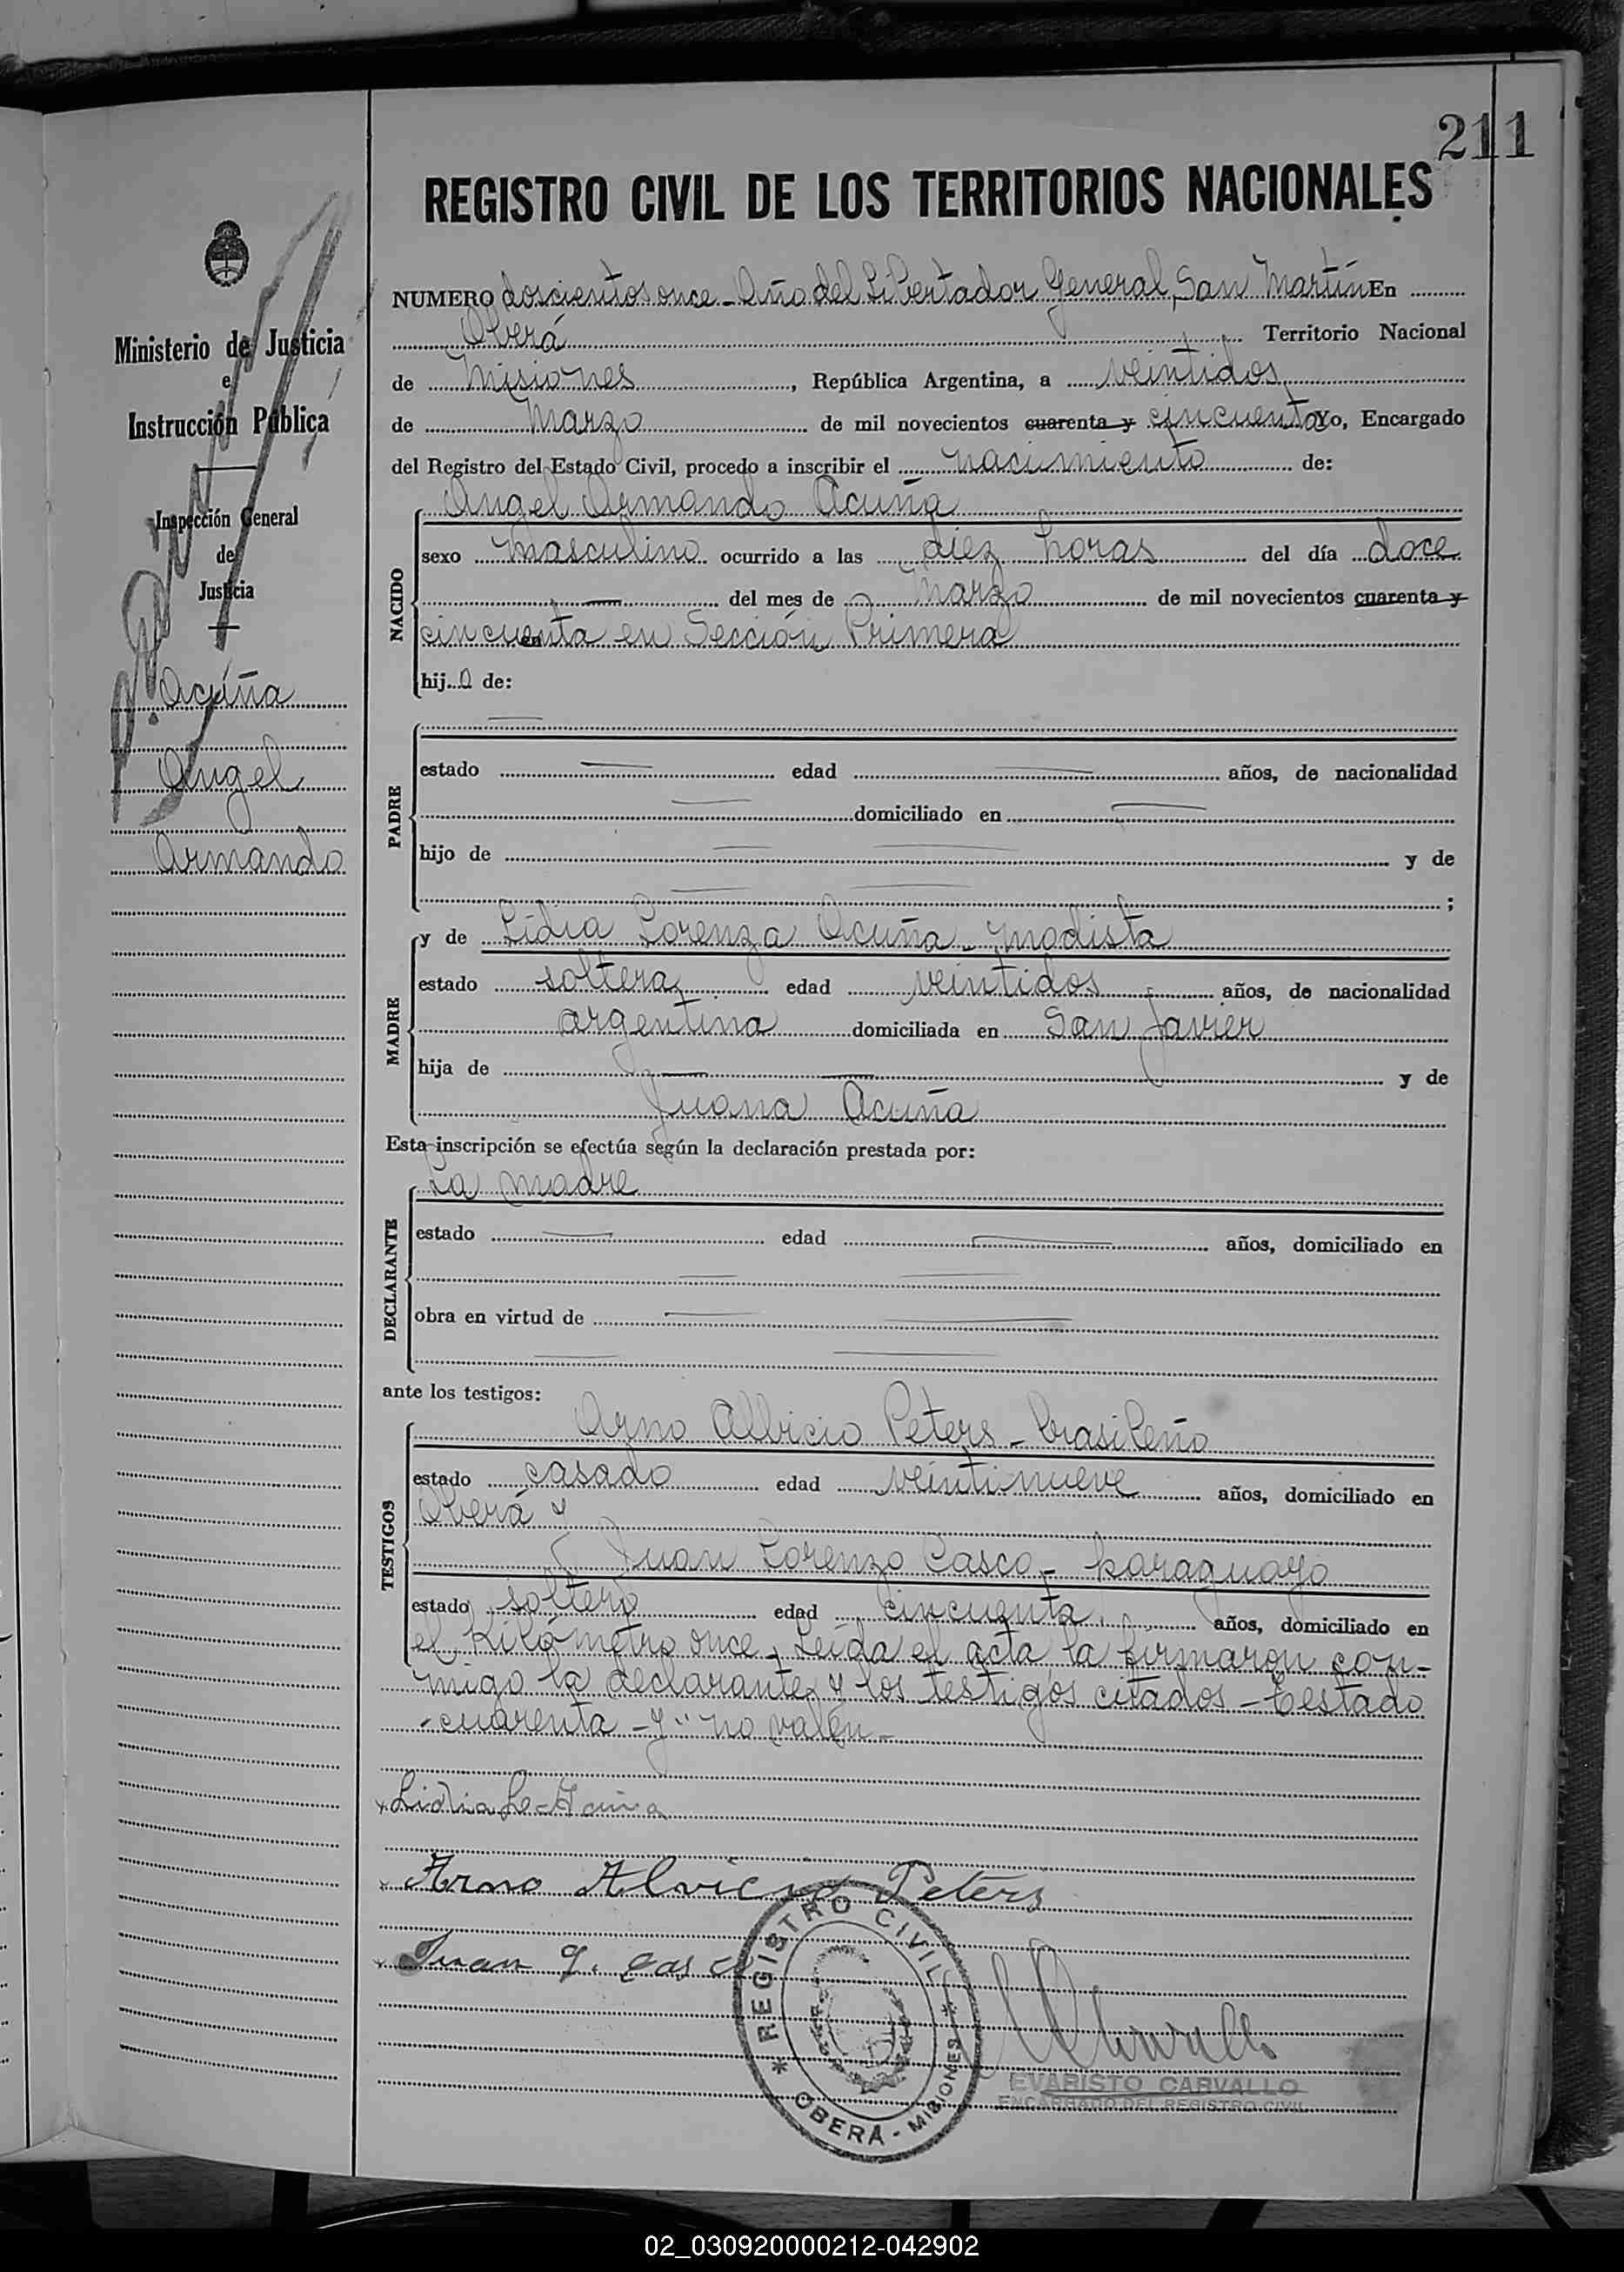 211
REGISTRO CIVIL DE LOS TERRITORIOS NACIONALES
Ministerio de Justicia
e
Instrucción Pública
Inspección General
de
Justicia
Acuña
Angel
Armando
NUMERO doscientos once - Año del Libertador General San Martín En
Oberá Territorio Nacional
de Misiones, República Argentina, a veintidos
de Marzo de mil novecientos cuarenta y cincuenta Yo, Encargado
del Registro del Estado Civil, procedo a inscribir el nacimiento de:
NACIDO
Angel Armando Acuña
sexo Masculino ocurrido a las diez horas del día doce
— del mes de Marzo de mil novecientos cuarenta y
cincuenta en Sección Primera
en
hijo de:
PADRE
—
estado — edad — años, de nacionalidad
— domiciliado en —
hijo de — — y de
— — ;
MADRE
y de Lidia Lorenza Acuña - modista
estado soltera edad veintidos años, de nacionalidad
argentina domiciliada en San Javier
hija de — — y de
Juana Acuña
Esta inscripción se efectúa según la declaración prestada por:
DECLARANTE
La madre
estado — edad — años, domiciliado en
— —
obra en virtud de — —
— —
ante los testigos:
TESTIGOS
Arno Albicio Peters - brasileño
estado casado edad veintinueve años, domiciliado en
Oberá y
Juan Lorenzo Casco - paraguayo
estado soltero edad cincuenta años, domiciliado en
el Kilómetro once - Leída el acta la firmaron con-
migo la declarante y los testigos citados - Testado
"cuarenta - y" no valen -
x Lidia L. Acuña
x Arno Alvicio Peters
x Juan L. Casco
* REGISTRO CIVIL *
OBERÁ - MISIONES
EVARISTO CARVALLO
ENCARGADO DEL REGISTRO CIVIL
02_030920000212-042902